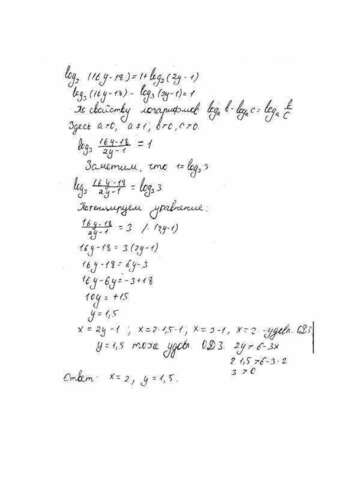 log₃ (16y-18) = 1 + log₃ (2y-1)
log₃ (16y-18) - log₃ (2y-1) = 1
По свойству логарифмов logₐ b - logₐ c = logₐ b/c
Здесь a>0, a≠1, b>0, c>0.
log₃ (16y-18)/(2y-1) = 1
Заметим, что 1=log₃ 3
log₃ (16y-18)/(2y-1) = log₃ 3
Потенцируем уравнение:
(16y-18)/(2y-1) = 3 /·(2y-1)
16y-18 = 3(2y-1)
16y-18 = 6y-3
16y-6y = -3+18
10y = +15
y = 1,5
x = 2y-1; x=2·1,5-1, x=3-1, x=2 -удовл. ОДЗ
y=1,5 тоже удовл. ОДЗ. 2y>6-3x
2·1,5>6-3·2
3>0
Ответ: x=2, y=1,5.